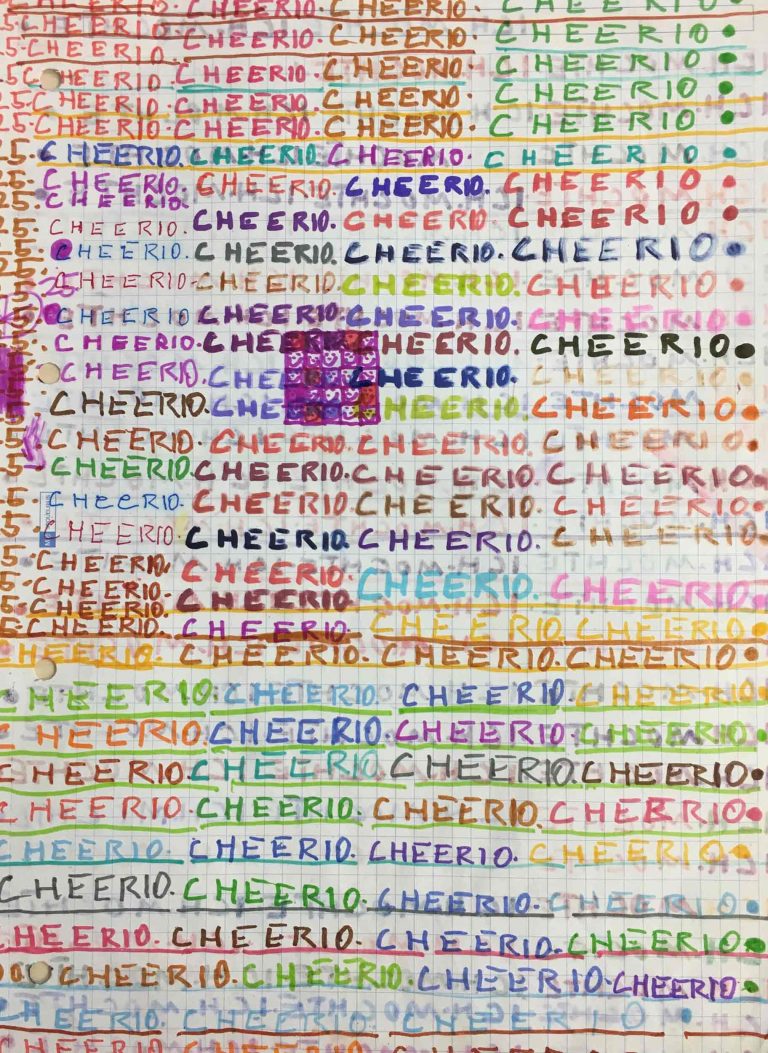 CHEERIO. CHEERIO. CHEERIO
5. CHEERIO. CHEERIO. CHEERIO. CHEERIO.
5. CHEERIO. CHEERIO. CHEERIO. CHEERIO.
5 CHEERIO. CHEERIO. CHEERIO. CHEERIO.
25. CHEERIO. CHEERIO. CHEERIO. CHEERIO.
25. CHEERIO. CHEERIO. CHEERIO. CHEERIO.
25. CHEERIO. CHEERIO. CHEERIO. CHEERIO.
25. CHEERIO. CHEERIO. CHEERIO. CHEERIO.
CHEERIO.
25. CHEERIO. CHEERIO. CHEERIO. CHEERIO.
25. CHEERIO. CHEERIO. CHEERIO. CHEERIO.
25 CHEERIO. CHEERIO. CHEERIO. CHEERIO.
5. CHEERIO CHEERIO. CHEERIO. CHEERIO.
5. CHEERIO. CHEE HEERIO. CHEERIO.
CHEERIO. CHEE CHEERIO. CHEERIO.
CHEERIO. CHEE HEERIO. CHEERIO.
5 CHEERIO. CHEERIO. CHEERIO. CHEERIO.
5. CHEERIO. CHEERIO. CHEERIO. CHEERIO.
5. CHEERIO. CHEERIO. CHEERIO. CHEERIO.
5 CHEERIO. CHEERIO. CHEERIO. CHEERIO.
5. CHEERIO. CHEERIO. CHEERIO. CHEERIO.
5. CHEERIO. CHEERIO.
5. CHEERIO.
5. CHEERIO. CHEERIO. CHEERIO. CHEERIO.
CHEERIO. CHEERIO. CHEERIO. CHEERIO.
CHEERIO. CHEERIO. CHEERIO. CHEERIO.
CHEERIO. CHEERIO. CHEERIO. CHEERIO.
CHEERIO. CHEERIO. CHEERIO. CHEERIO.
CHEERIO. CHEERIO. CHEERIO. CHEERIO.
CHEERIO. CHEERIO. CHEERIO. CHEERIO.
CHEERIO. CHEERIO. CHEERIO. CHEERIO.
CHEERIO. CHEERIO. CHEERIO. CHEERIO.
CHEERIO. CHEERIO. CHEERIO. CHEERIO.
CHEERIO. CHEERIO. CHEERIO.
CHEERIO. CHEERIO. CHEERIO. CHEERIO